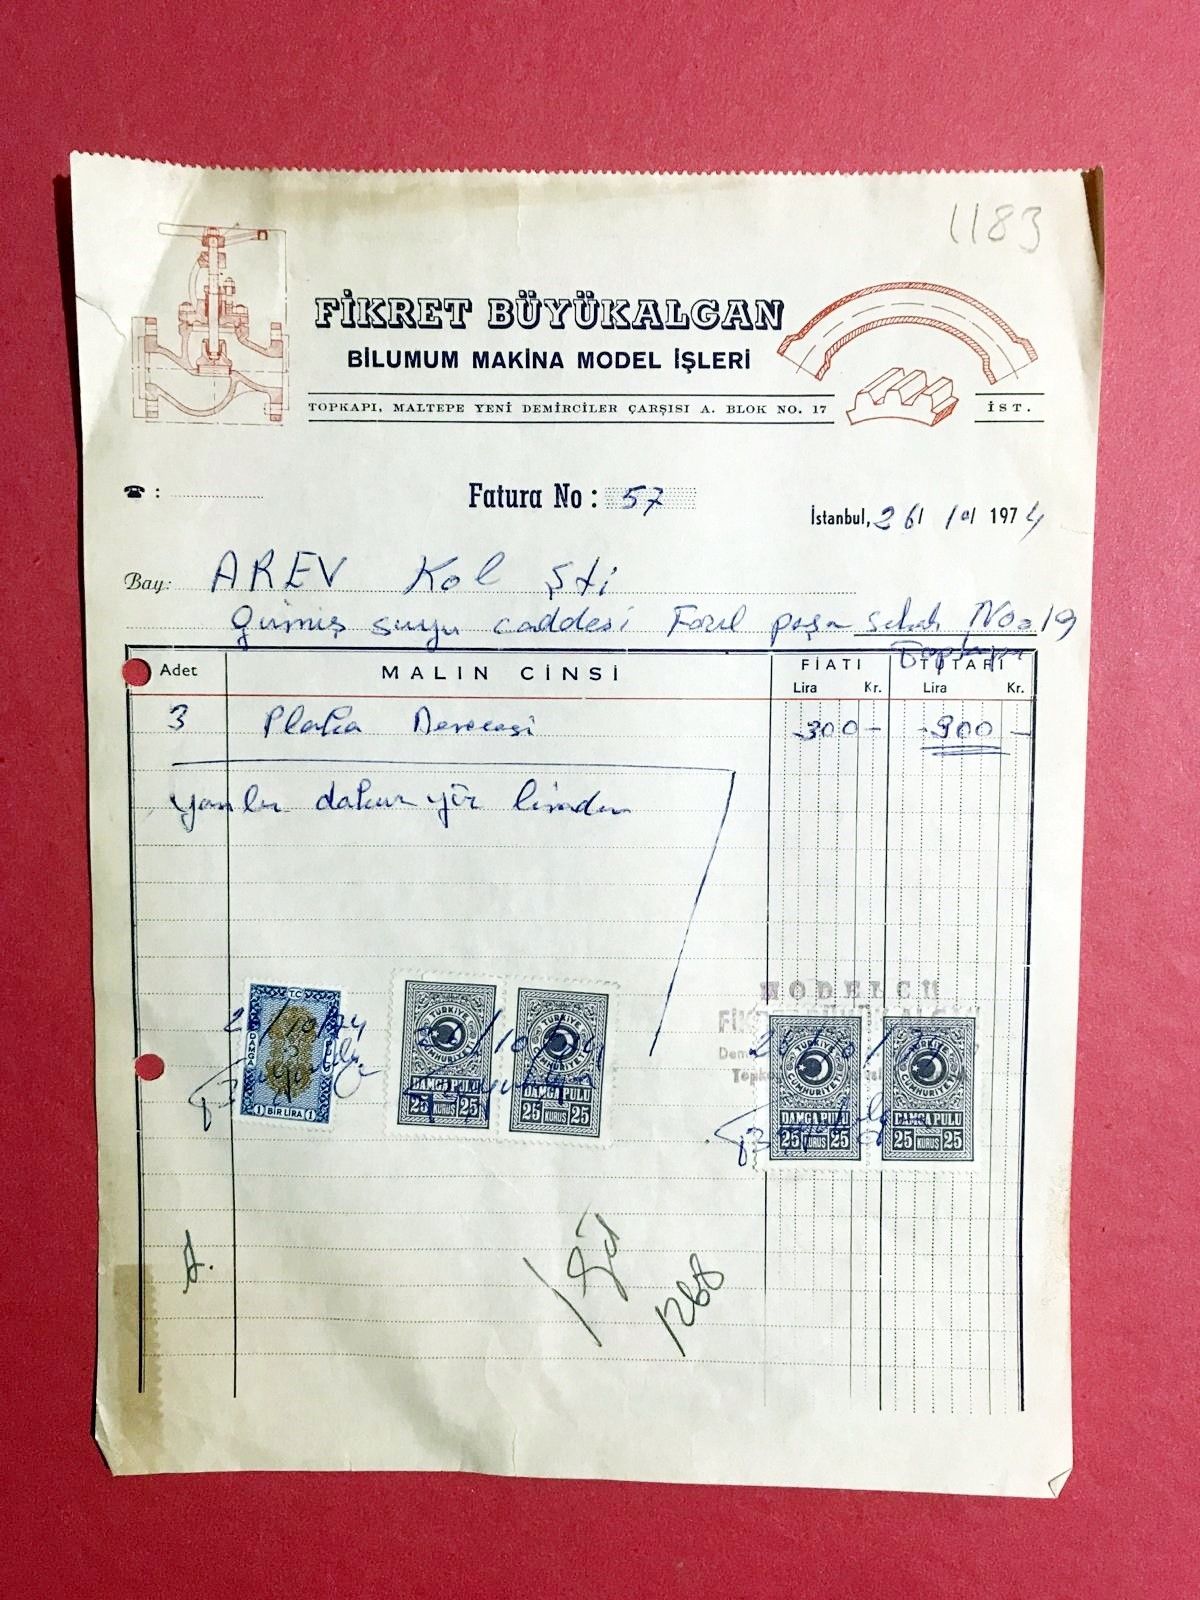 1183
FİKRET BÜYÜKALGAN
BİLUMUM MAKİNA MODEL İŞLERİ
TOPKAPI, MALTEPE YENİ DEMİRCİLER ÇARŞISI A. BLOK NO. 17 İST.
☎ :
Fatura No : 57
İstanbul, 26/ 10/ 1974
Bay: AREV Kol Şti
Gümüş suyu caddesi paşa No 19
Adet MALIN CİNSİ FİATI TUTARI
Lira Kr. Lira Kr.
3 Plaka Derecesi 300 - 900 -
Yanlız dokuz yüz liradır
TC
26/10/74
1 BİR LİRA 1
TÜRKİYE CUMHURİYETİ
DAMGA PULU
25 KURUŞ 25
TÜRKİYE CUMHURİYETİ
DAMGA PULU
25 KURUŞ 25
MODELCİ
TÜRKİYE CUMHURİYETİ
DAMGA PULU
25 KURUŞ 25
TÜRKİYE CUMHURİYETİ
DAMGA PULU
25 KURUŞ 25
1268